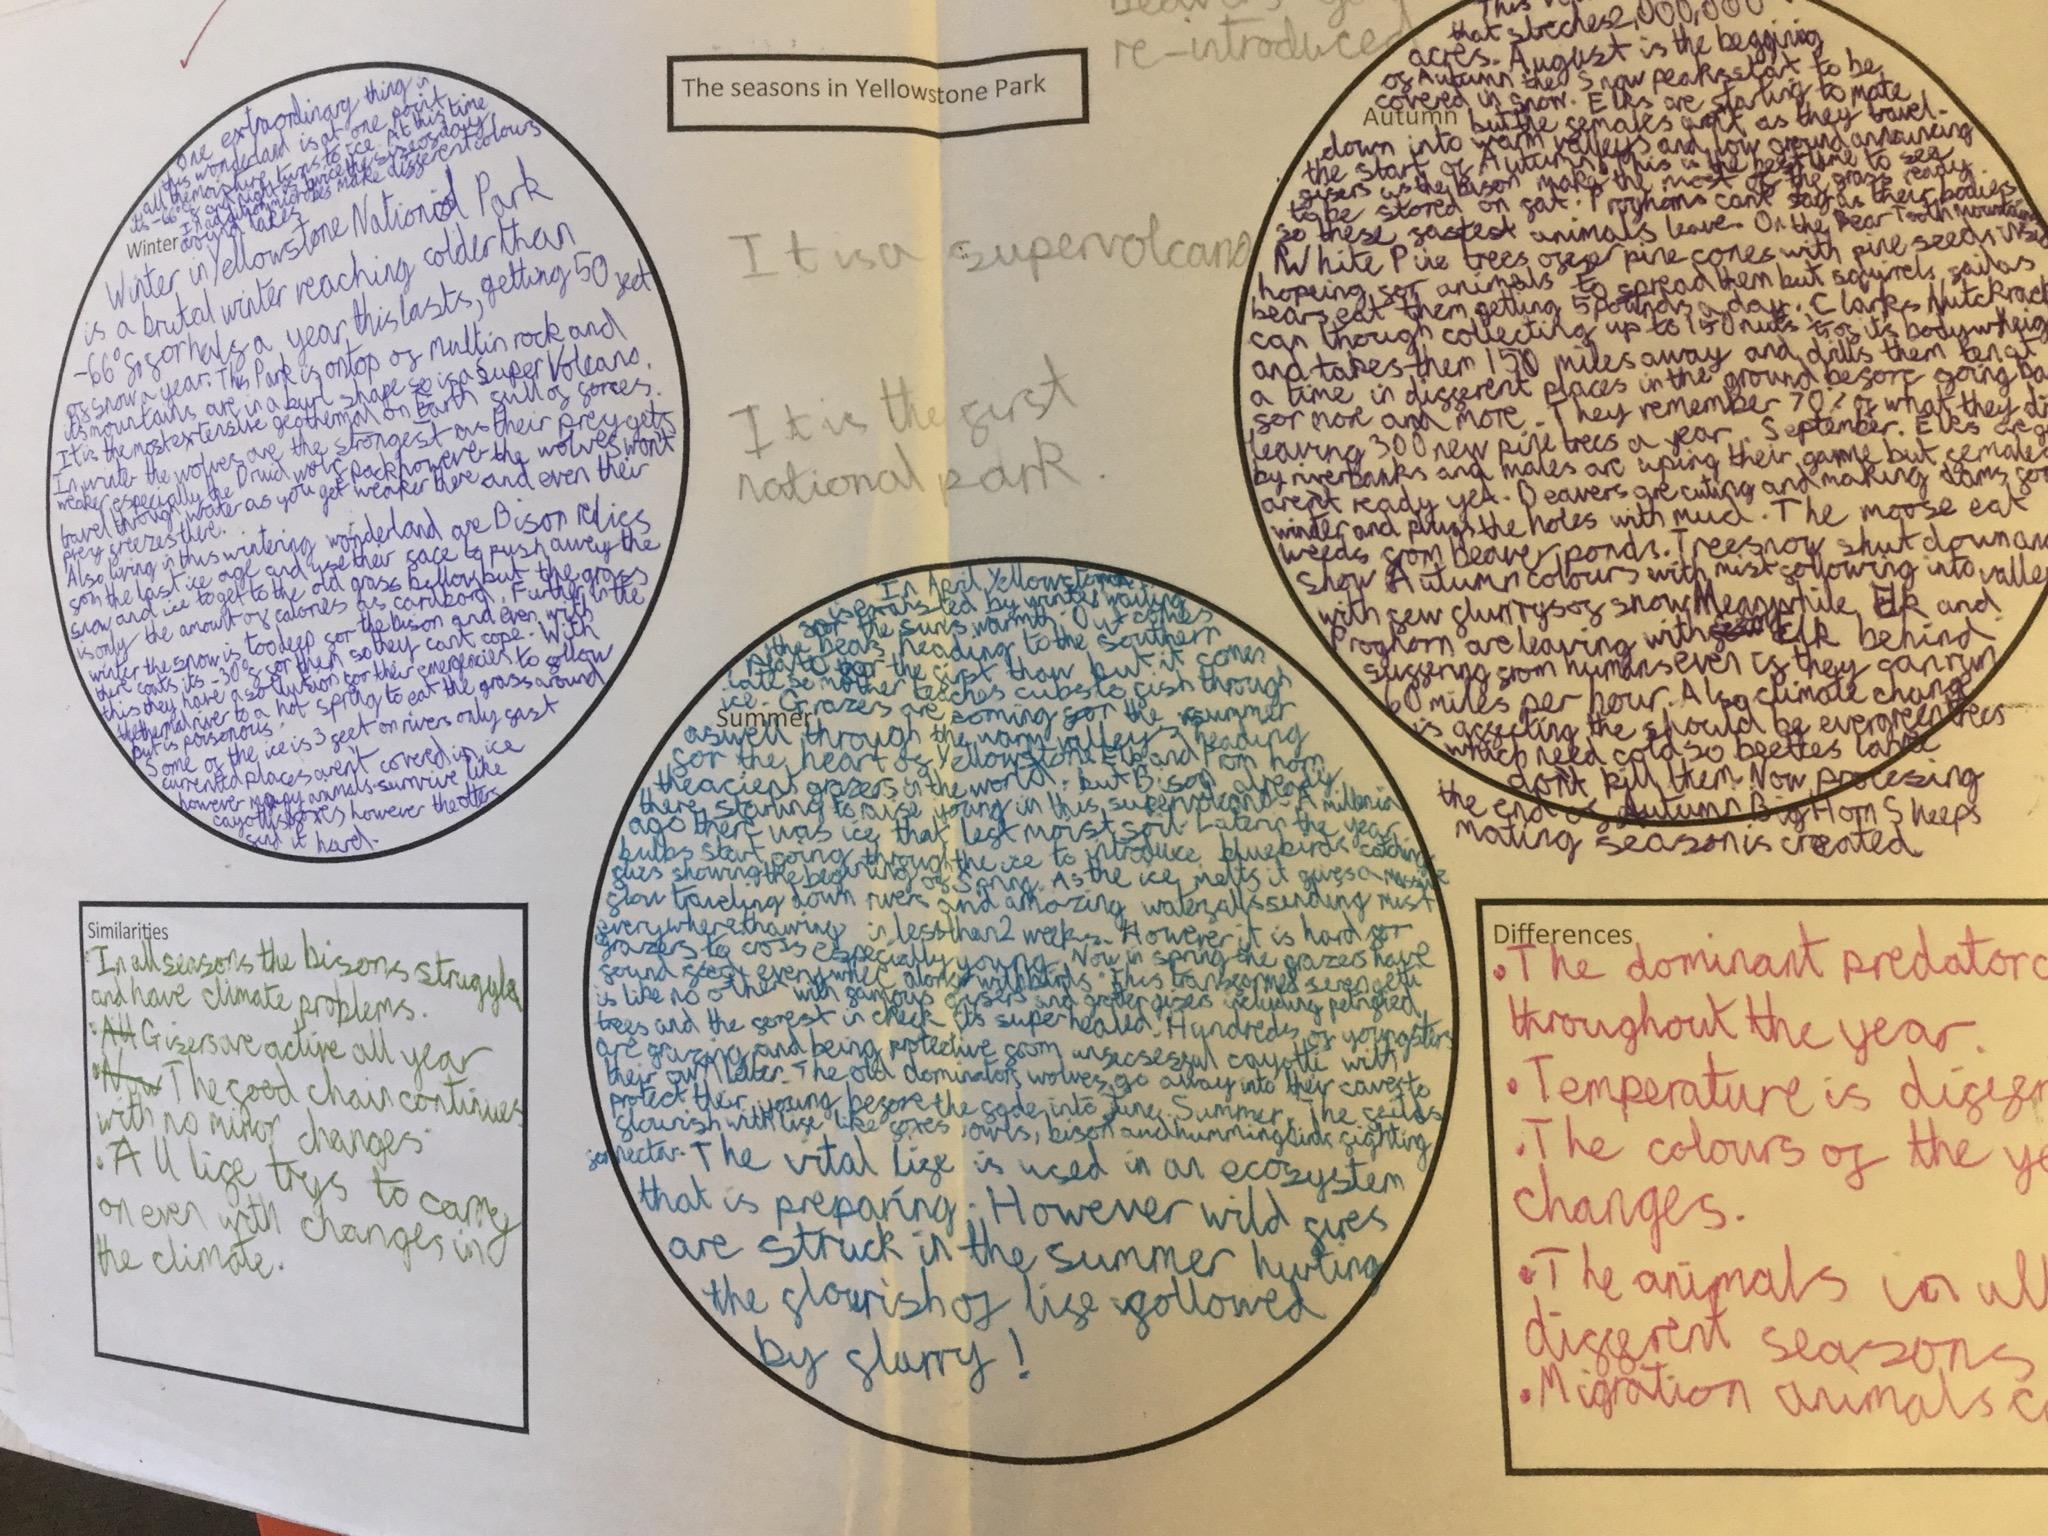 The seasons in Yellowstone Park
re-introduced
It is a supervolcano
It is the first
national park.
one extraordinary thing in
this wonderland is at one point
turns to ice. At this time
its -66°f
In addition microbes make different colours
around lakes
Winter
Winter in Yellowstone National Park
is a brutal winter reaching colder than
-66°f, for half a year this lasts, getting 50 feet
of snow a year. This Park is ontop of rock and
its mountains are in a shape so is a super volcano.
It is the most extensive geothermal on Earth full of forces.
In winter the wolves are the strongest as their prey gets
weaker especially the Druid wolve pack however the wolves won't
travel through water as you get weaker there and even their
prey freezes there.
Also living in this wintering wonderland are Bison relics
from the last ice age and use their face to push away the
snow and ice to get to the old grass bellow but the grass
is only the amount of calories as cardbord. Further in the
winter the snow is too deep for the bison and even with
there coats its -30°f for them so they cant cope. With
this they have a for their emergencies to follow
the thermal river to a hot spring to eat the grass around
but is poisonous.
Some of the ice is 3 feet on rivers only fast
currented places arent covered in ice
however many animals survive like
however the otters
find it hard.
that streches 2,000,000
acres. August is the beggining
of Autumn the Snow peaks start to be
covered in snow. Elks are starting to mate
Autumn
but the females arent as they travel
down into warm valleys and low ground announcing
the start of Autumn. This is the best time to see
as the bison make the most of the grass ready
to be stored on fat. cant as their bodies
so these fastest animals leave. On the Bear Tooth mountains
White Pine trees pine cones with pine seeds
hopeing for animals to spread them but squirrels fail as
bears eat them getting 5 pounds a day. Clarks Nutcrack
can though collecting up to 150 nuts its body wheig
and takes them 150 miles away and drills them
a time in different places in the ground before going ba
for more and more. They remember 70% of what they di
leaving 300 new pine trees a year. September. Elks are
by riverbanks and males are uping their game but females
arent ready yet. Beavers are cuting and making dams for
winter and plug the holes with mud. The moose eat
weeds from beaver ponds. Trees now shut down and
show Autumn colours with mist following into valle
with few flurrys of snow. Meanwhile, Elk and
Proghorn are leaving with Elk behind
suffering from humans even if they can run
60 miles per hour. Also climate change
is affecting the should be evergreen trees
which need cold so beetles
dont kill them. Now
the end of Autumn Big Horn Sheeps
mating season is created
In April Yellowstone
is exausted by winter waiting
for the suns warmth. Out comes
the bears, heading to the southern
for the first thaw but it comes
late so mother teaches cubs to fish through
ice. Grazers are coming for the summer
Summer
aswell through the warm valleys heading
for the heart of Yellowstone. Elk and
the acient grazers in the world. but Bison already
there starting to raise young in this supervolcano. A millenia
ago there was ice that left moist soil. Later in the year
bulbs start going through the ice to introduce bluebirds catching
flies showing the beginning of Spring. As the ice melts it gives a massive
flow traveling down rivers and amazing waterfalls sending mist
everywhere thawing in less than 2 weeks. However it is hard for
grazers to cross especially young. Now in spring the grazers have
found food everywhere along with birds. This transformed serengetti
is like no other with famous gisers and greater gisers including petrified
trees and the forest in check its super healed. Hundreds of youngsters
are grazing and being protective from unsecsessful cayotti with
their own later. The old dominators wolves go away into their caves to
protect their young before the fade into June. Summer. The
flourish with life like foxes, owls, bison and hummingbirds fighting
for nectar. The vital life is used in an ecosystem
that is preparing. However wild fires
are struck in the summer hurting
the flourish of life followed
by flurry!
Similarities
In all seasons the bisons struggle
and have climate problems.
• Gisers are active all year
• The food chain continues
with no minor changes
• All life trys to carry
on even with changes in
the climate.
Differences
• The dominant predator c
throughout the year.
• Temperature is differ
• The colours of the ye
changes.
• The animals in all
different seasons
• Migration animals c